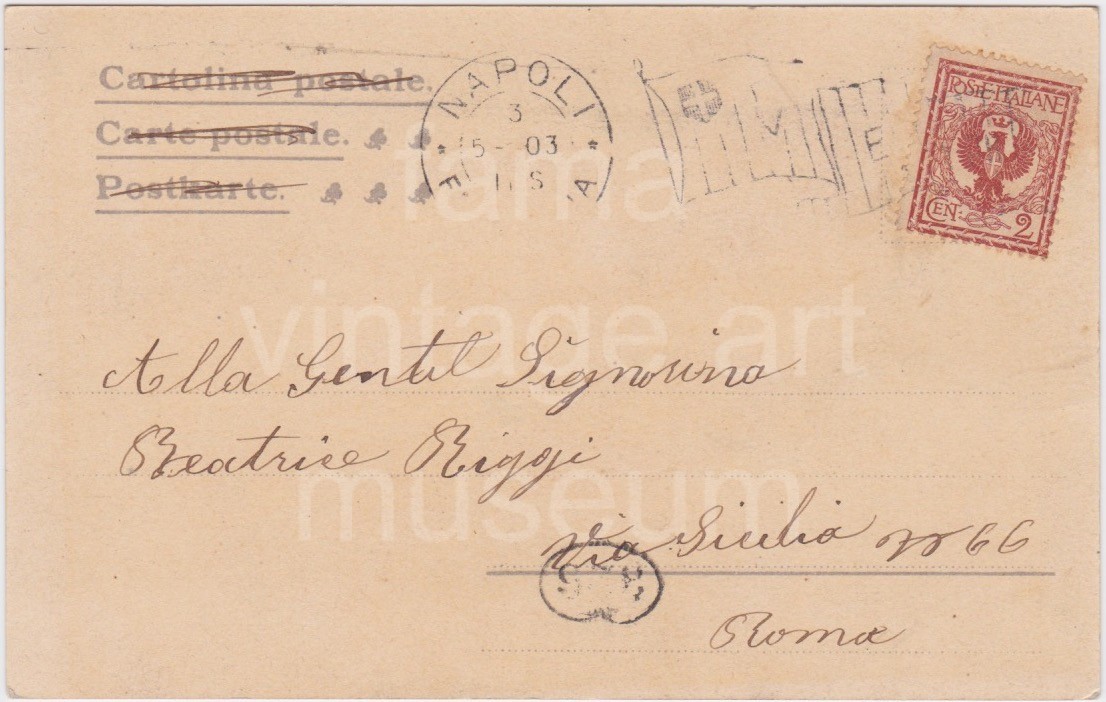 Cartolina postale.
Carte postale.
Postkarte.
NAPOLI
3
5- 03
11 S
E
POSTE ITALIANE
CEN: 2
fama
vintage art
museum
Alla Gentil Signorina
Beatrice Riggi
Via Sicilia n 66
Roma